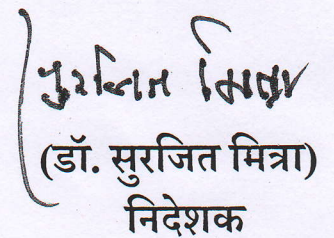 सुरजित मित्रा
(डॉ. सुरजित मित्रा)
निदेशक